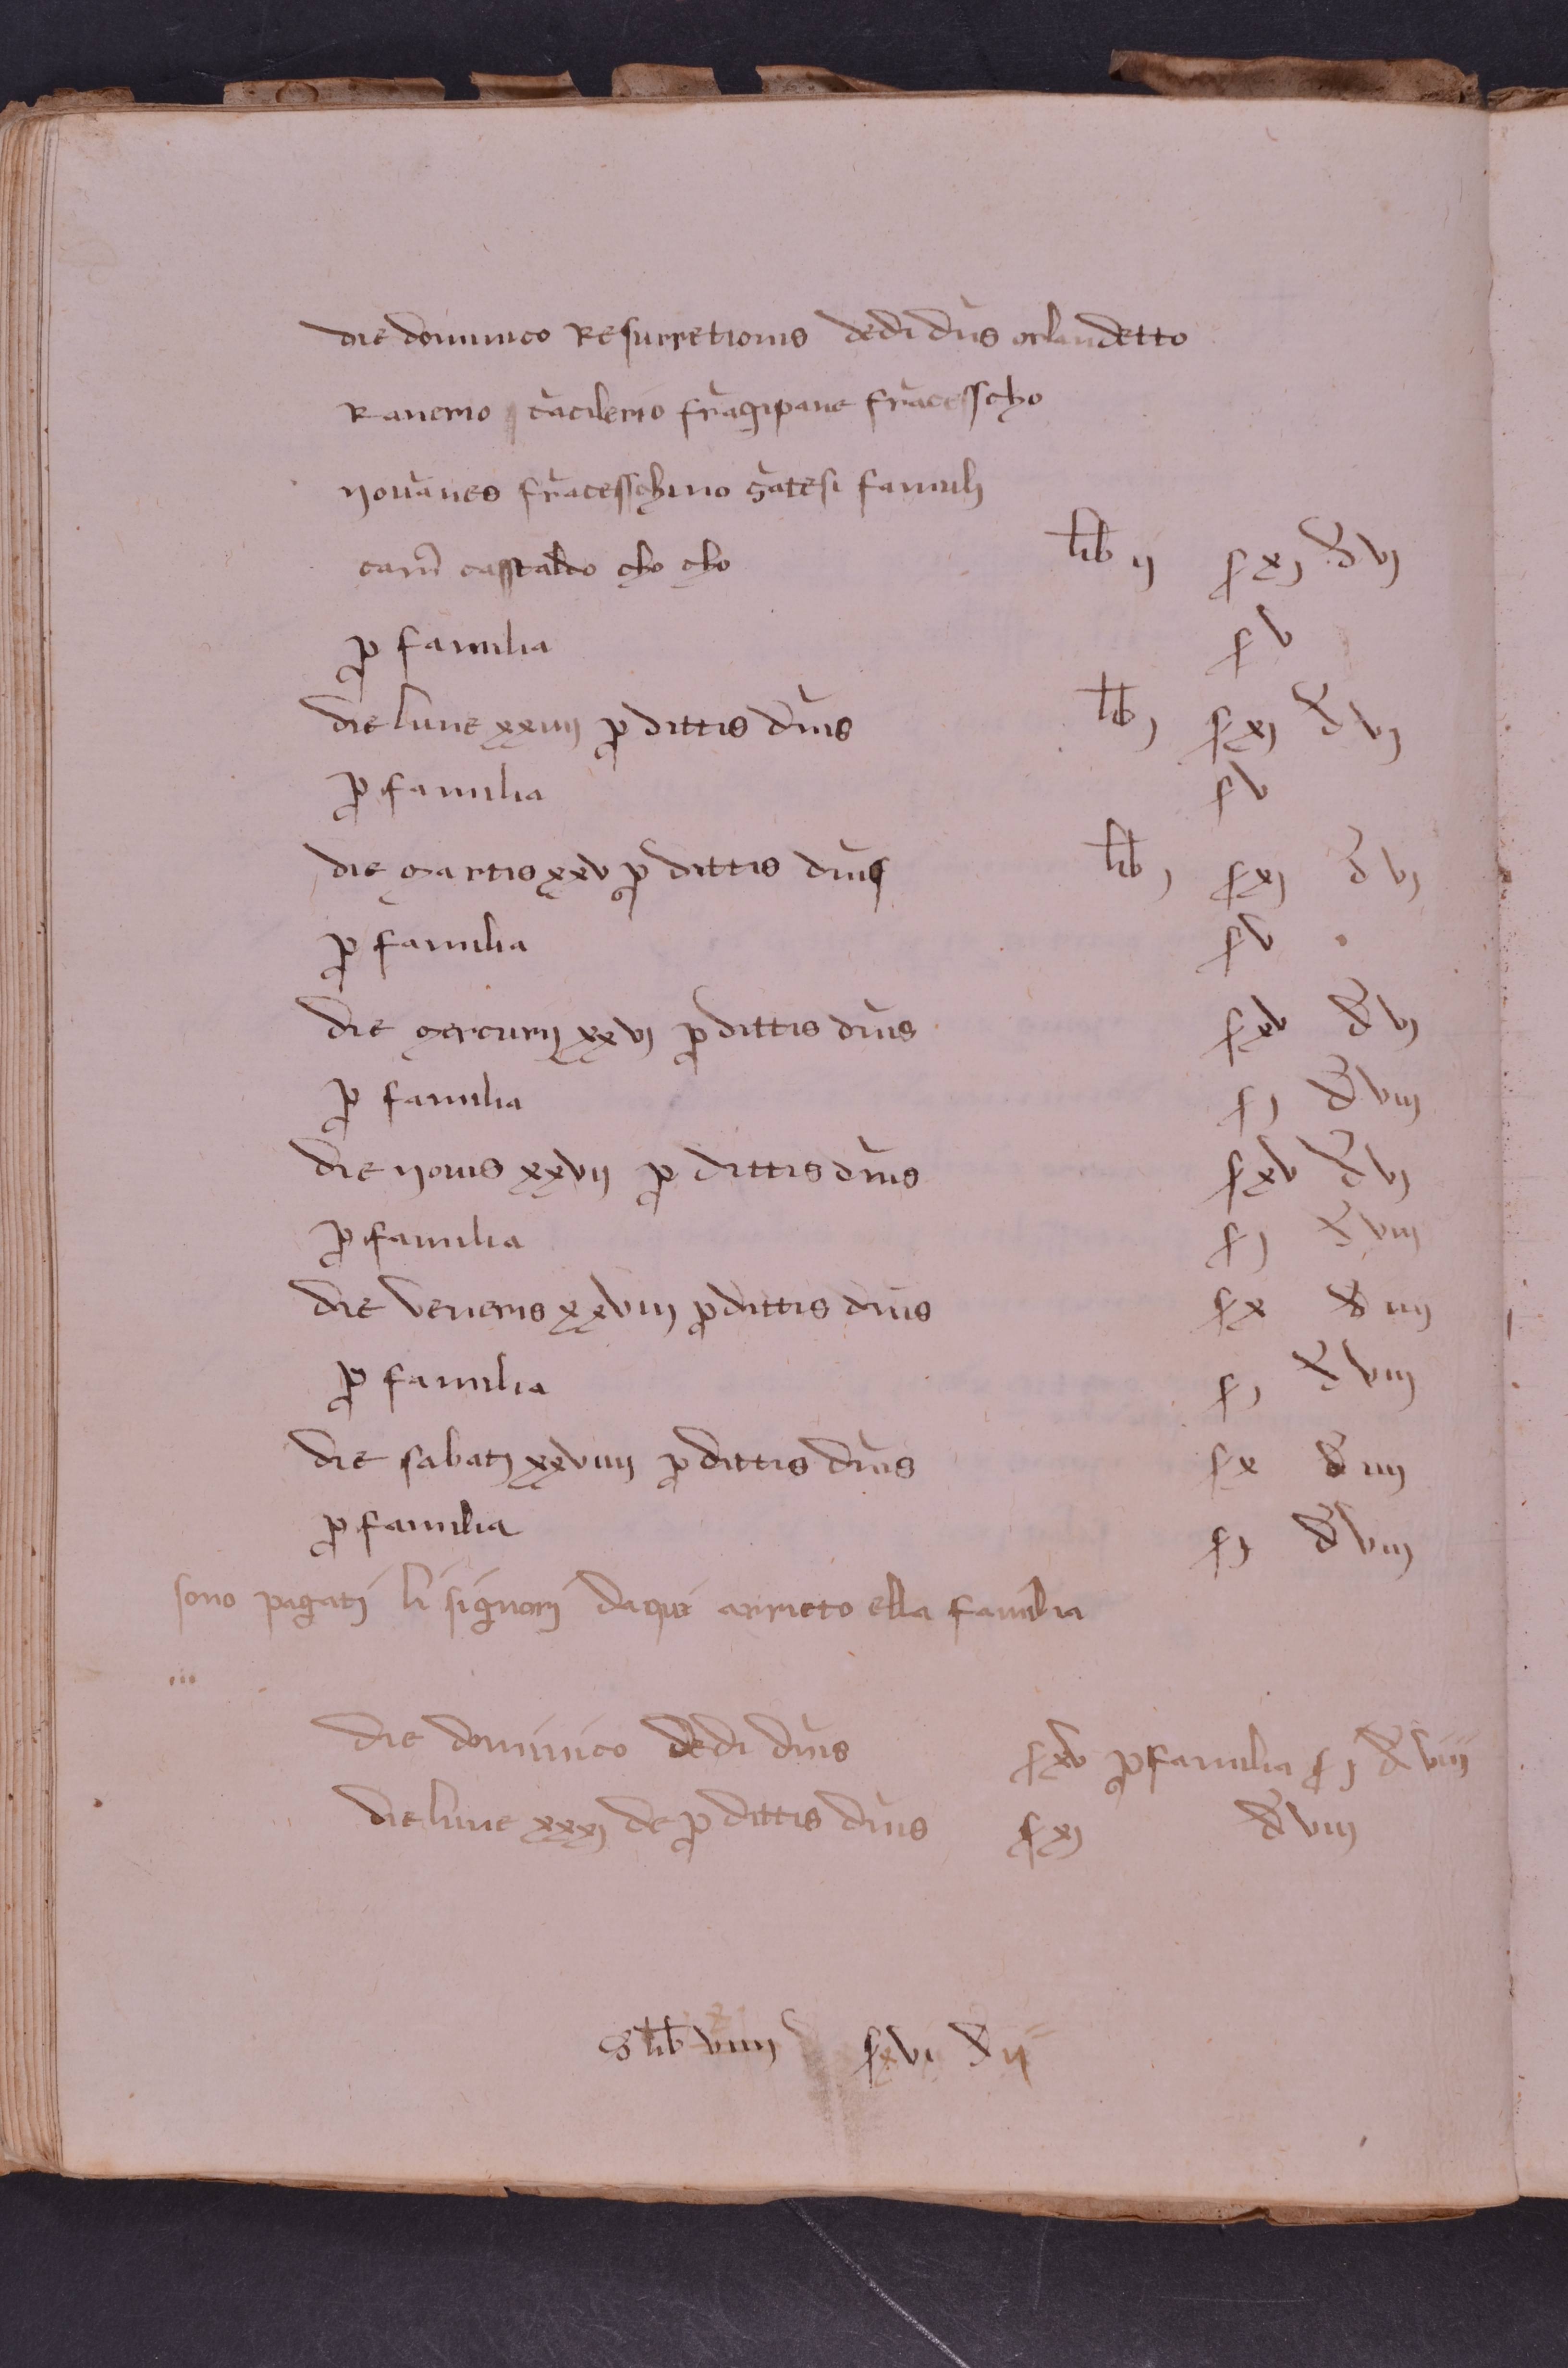 die dominico Resurretionis dedi dn̄s orlandetto
Ranerio cācilerio frāgipane frācesscho
novānes frācesschino gātesi famuli
cam̄ casstaldo cho cho lib ij s xj d vj
ꝓ familia s v
die lune xxiiij ꝓ dittis dn̄is lib j s xj d vj
ꝓ familia s v
die martis xxv ꝓ dittis dn̄is lib j s xj d vj
ꝓ familia s v
die mercurij xxvj ꝓ dittis dn̄is s xv d vj
ꝓ familia s j d viij
die yovis xxvij ꝓ dittis dn̄is s xv d vj
ꝓ familia s j d viij
die veneris xxviij ꝓ dittis dn̄is s x d iiij
ꝓ familia s j d viij
die sabatj xxviiij ꝓ dittis dn̄is s x d iiij
ꝓ familia s j d viij
sono pagatj li signorj daqui arrieto ella familia
die dominico dedi dn̄is s xv ꝓ familia s j d viij
die lune xxxj de ꝓ dittis dn̄is s xj d viij
S lib viiij s xvi d ij